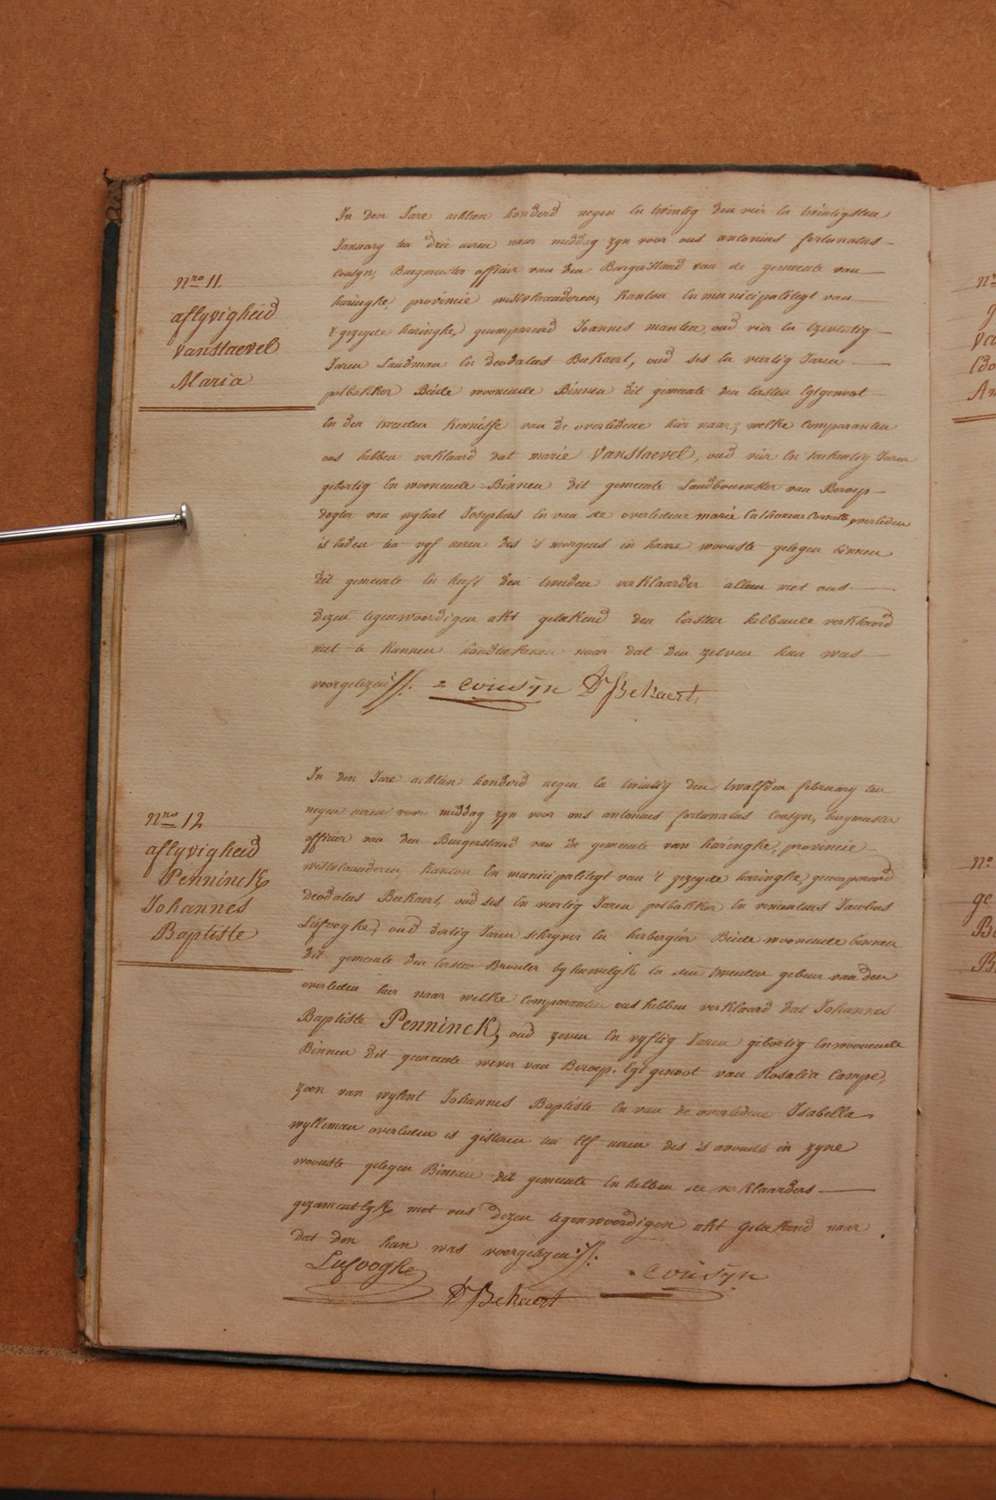 Nro 11
aflyvigheid
Vanstaevel
Maria
In den Jare achtien honderd negen en twintig den vier en twintigsten
January ten drie uren naer middag zyn voor ons antonius fortunatus
Cousyn, Burgmeester officier van den Burgerstand van de gemeente van
haringhe, provincie westvlaanderen, kanton en municipaliteyt van
't gezeyde haringhe, gecompareerd Joannes maerten, oud vier en
Jaren Landman en deodatus Bekaert, oud ses en veertig Jaren
Beide woonende Binnen dit gemeente den eersten
en den tweeden kennisse van de overledene hier naer; welke Comparanten
ons hebben verklaerd dat marie Vanstaevel, oud vier en tachentig Jaren
gebortig en woonende Binnen dit gemeente Landbouwster van Beroep
dogter van wylent Josephus en van de overledene marie Catharine overleden
is heden ten vyf uren des 's morgens in haere woonste gelegen binnen
dit gemeente en heeft den tweeden verklaarder alleen met ons
dezen tegenwoordigen akt geteekend den eersten hebbende verklaard
niet te kunnen handteekenen naer dat den zelven hun was
voorgelezen //. = Cousyn Dr Bekaert
Nro 12
aflyvigheid
Penninck
Johannes
Baptiste
In den Jare achtien honderd negen en twintig den twalfden february ten
negen uren voor middag zyn voor ons antonius fortunatus Cousyn, burgmeester
officier van den Burgerstand van de gemeente van haringhe, provincie
westvlaanderen, kanton en municipaliteyt van 't gezeyde haringhe, gecompareerd
deodatus Bekaert, oud ses en veertig Jaren en Jacobus
Lufooghe, oud dertig Jaren schryver en herbergier Beide woonende binnen
dit gemeente den eersten Broeder by huwelyk en den tweeden gebuer van den
overleden hier naer welke comparanten ons hebben verklaard dat Johannes
Baptiste Penninck, oud zeven en vyftig Jaren gebortig en woonende
Binnen dit gemeente wever van Beroep. Egtgenoot van Rosalia Campe,
zoon van wylent Johannes Baptiste en van de overledene Isabella
wylleman overleden is gisteren ten elf uren des 's avonds in zyne
woonste gelegen Binnen dit gemeente en hebben de verklaarders
gezamentlyk met ons dezen tegenwoordigen akt geteekend naer
dat den hun was voorgelezen //.
Lufooghe Dr Bekaert = Cousyn